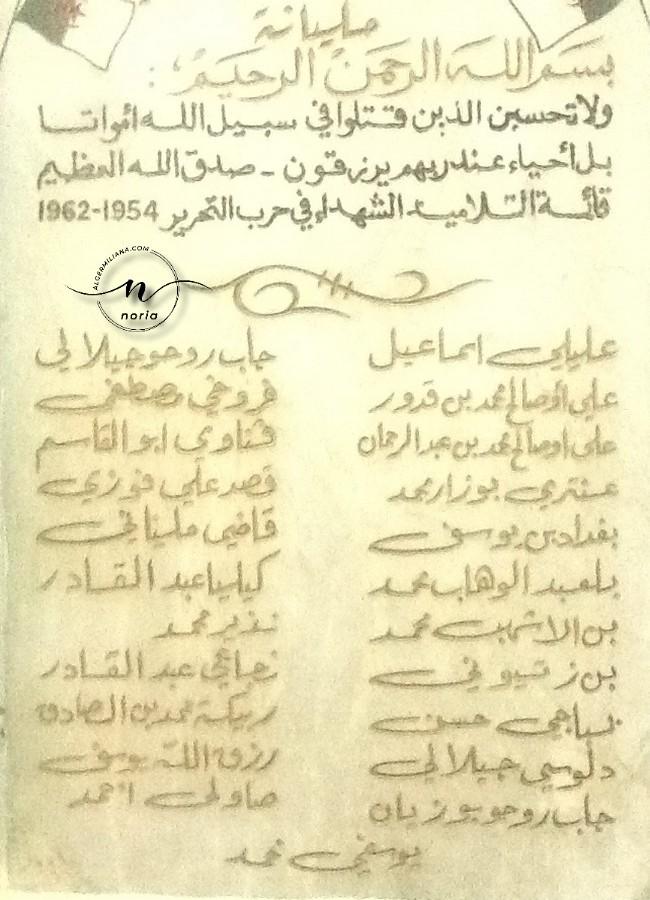 مليانة
بسم الله الرحمن الرحيم :
ولا تحسبن الذين قتلوا في سبيل الله أمواتا
بل أحياء عند ربهم يرزقون - صدق الله العظيم
قائمة التلاميذ الشهداء في حرب التحرير 1954-1962
ALGERMILIANA.COM
n
noria
عليلي اسماعيل
علي أوصالح محمد بن قدور
علي اوصالح محمد بن عبد الرحمان
عنتري بوزار محمد
بغداد بن يوسف
بلعبد الوهاب محمد
بن الاشهب محمد
بن
حسن
دلوسي جيلالي
جاب روحو بوزيان
جاب روحو جيلالي
فروخي مصطفى
قناوي ابو القاسم
قصد علي فوزي
قاضي ملياني
كيليا عبد القادر
نذير محمد
عبد القادر
ربيكة محمد بن الصادق
رزق الله يوسف
صاولي احمد
يوسفي محمد